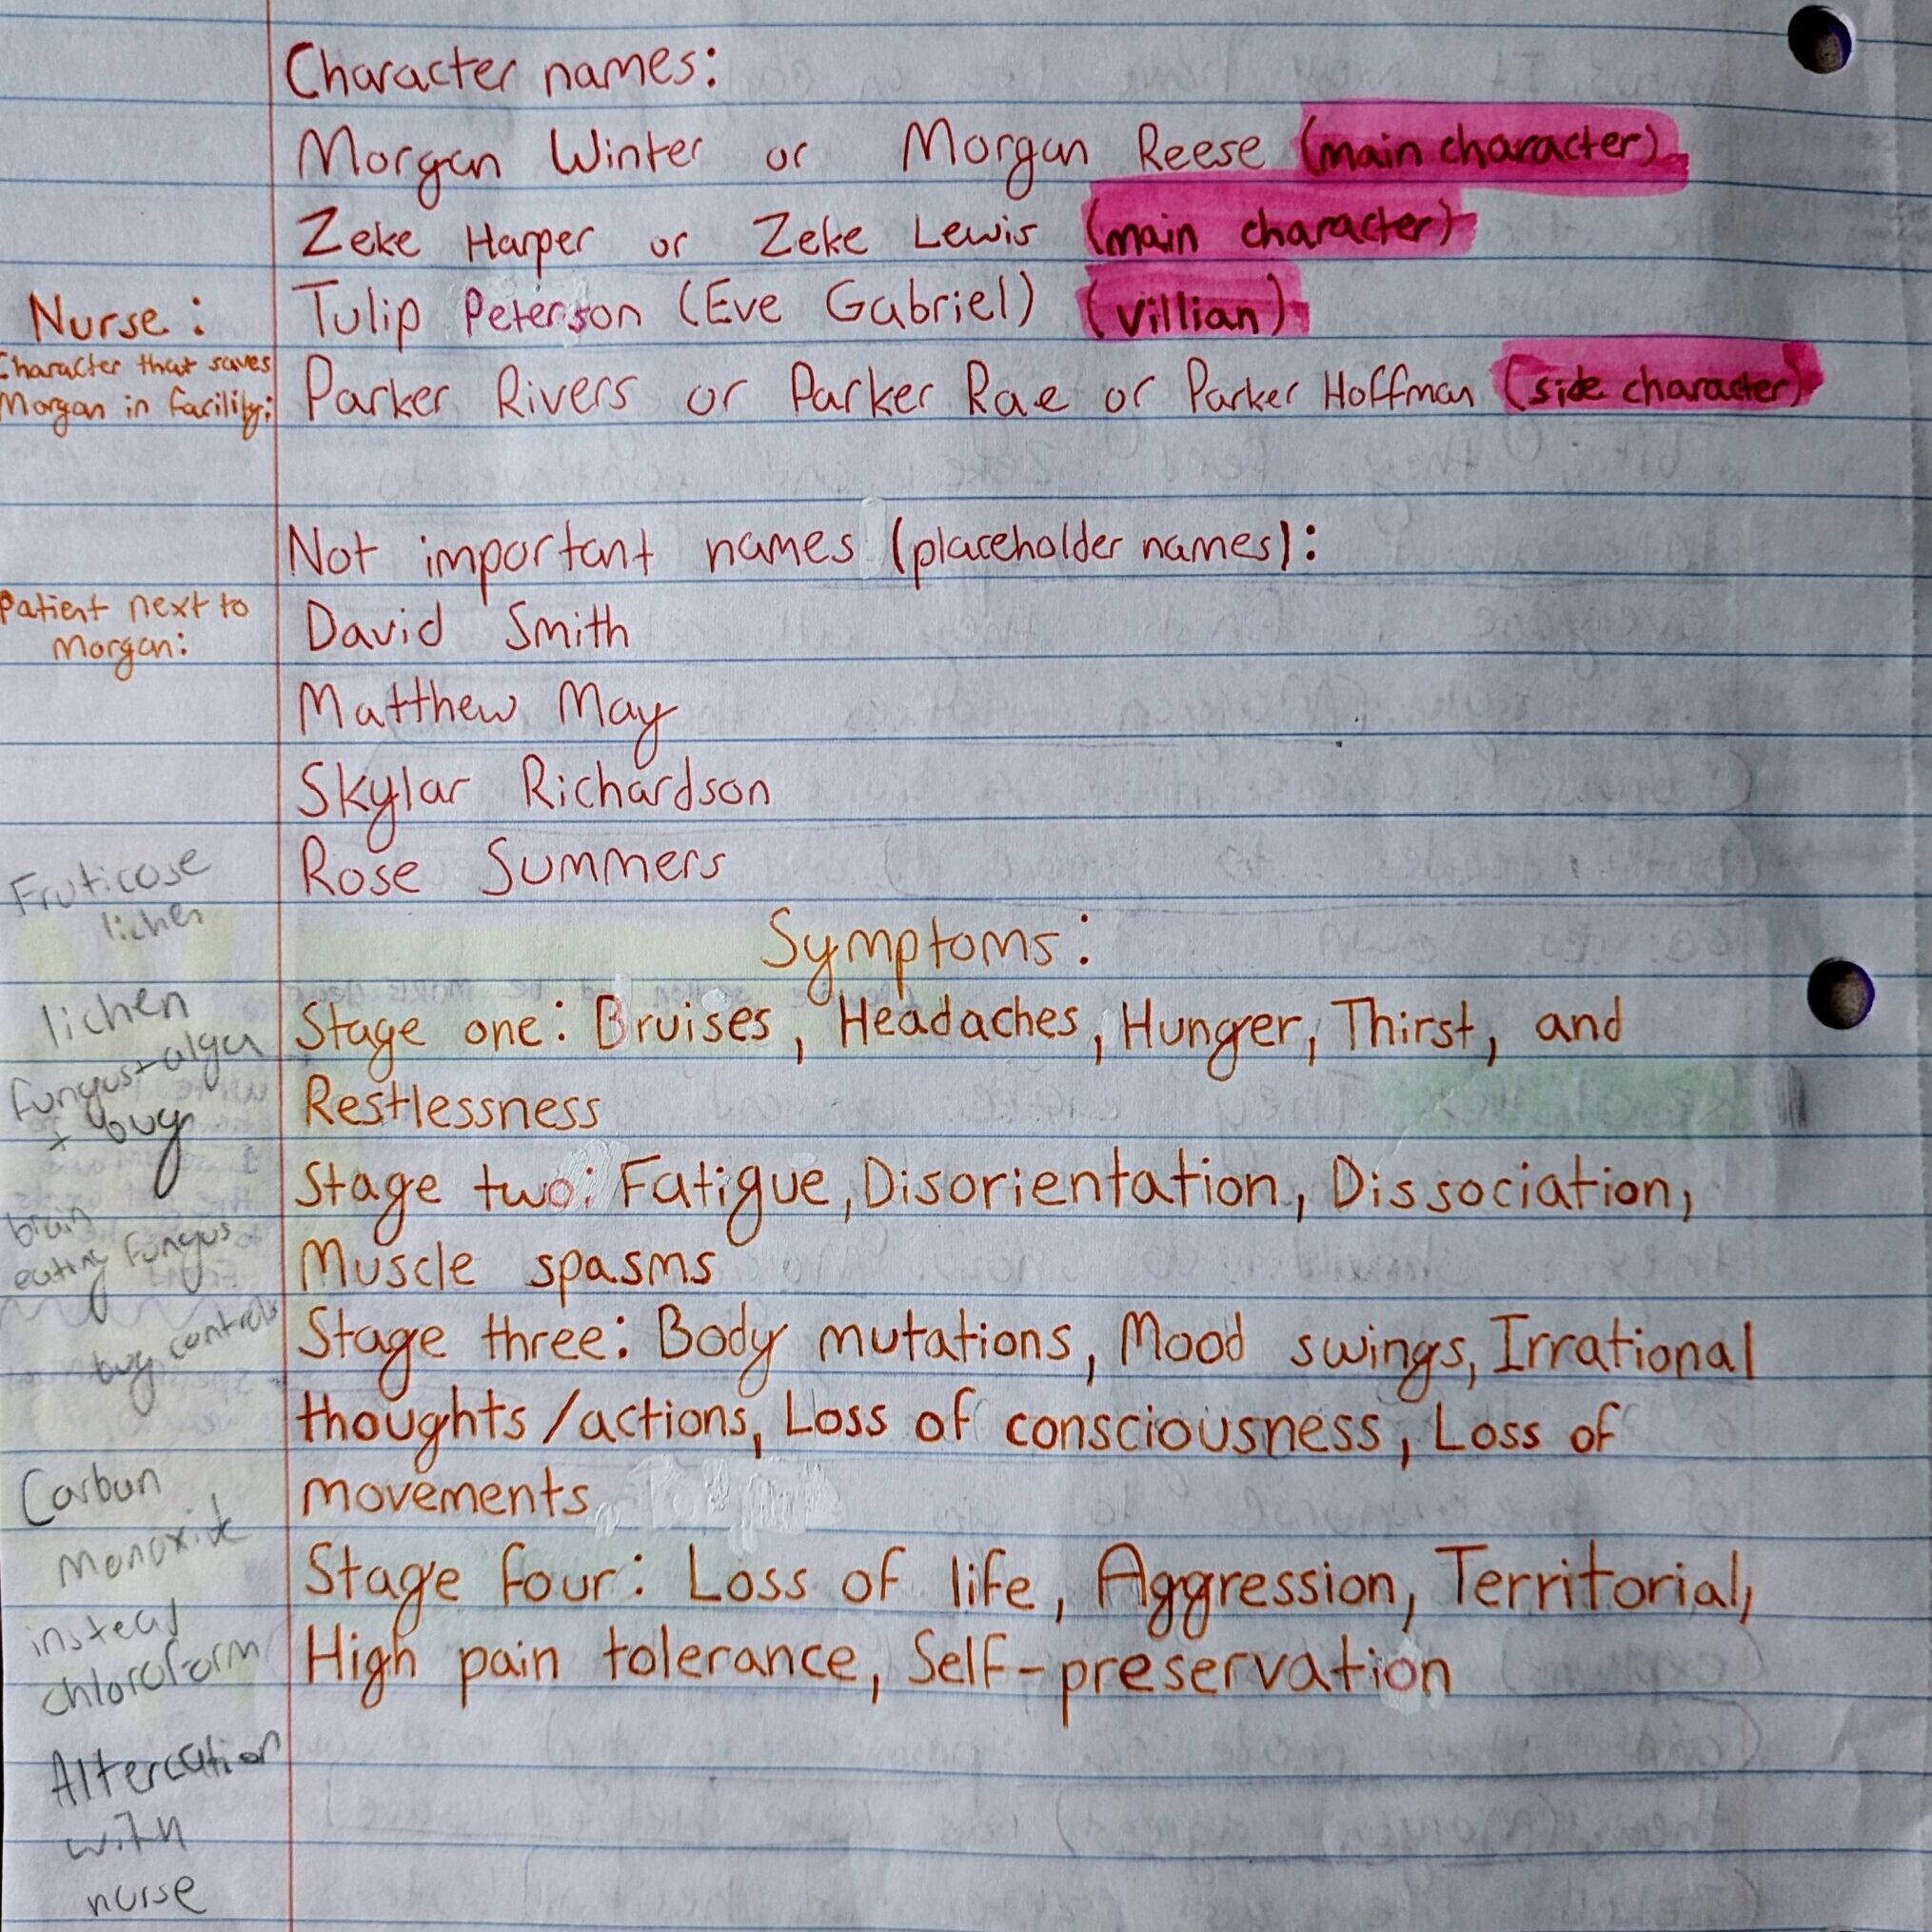 Character names:
Morgan Winter or Morgan Reese (main character)
Zeke Harper or Zeke Lewis (main character)
Nurse: Tulip Peterson (Eve Gabriel) (villian)
Character that saves
Morgan in facility: Parker Rivers or Parker Rae or Parker Hoffman (side character)
Not important names (placeholder names):
Patient next to
Morgan: David Smith
Matthew May
Skylar Richardson
Rose Summers
Fruticose
lichen
Symptoms:
lichen
fungus + alga
+ bug
Stage one: Bruises, Headaches, Hunger, Thirst, and
Restlessness
Stage two: Fatigue, Disorientation, Dissociation,
Muscle spasms
brain
eating fungus
bug controls
Stage three: Body mutations, Mood swings, Irrational
thoughts/actions, Loss of consciousness, Loss of
movements
Carbon
Monoxide
instead
chloroform
Stage four: Loss of life, Aggression, Territorial,
High pain tolerance, Self-preservation
Altercation
with
nurse